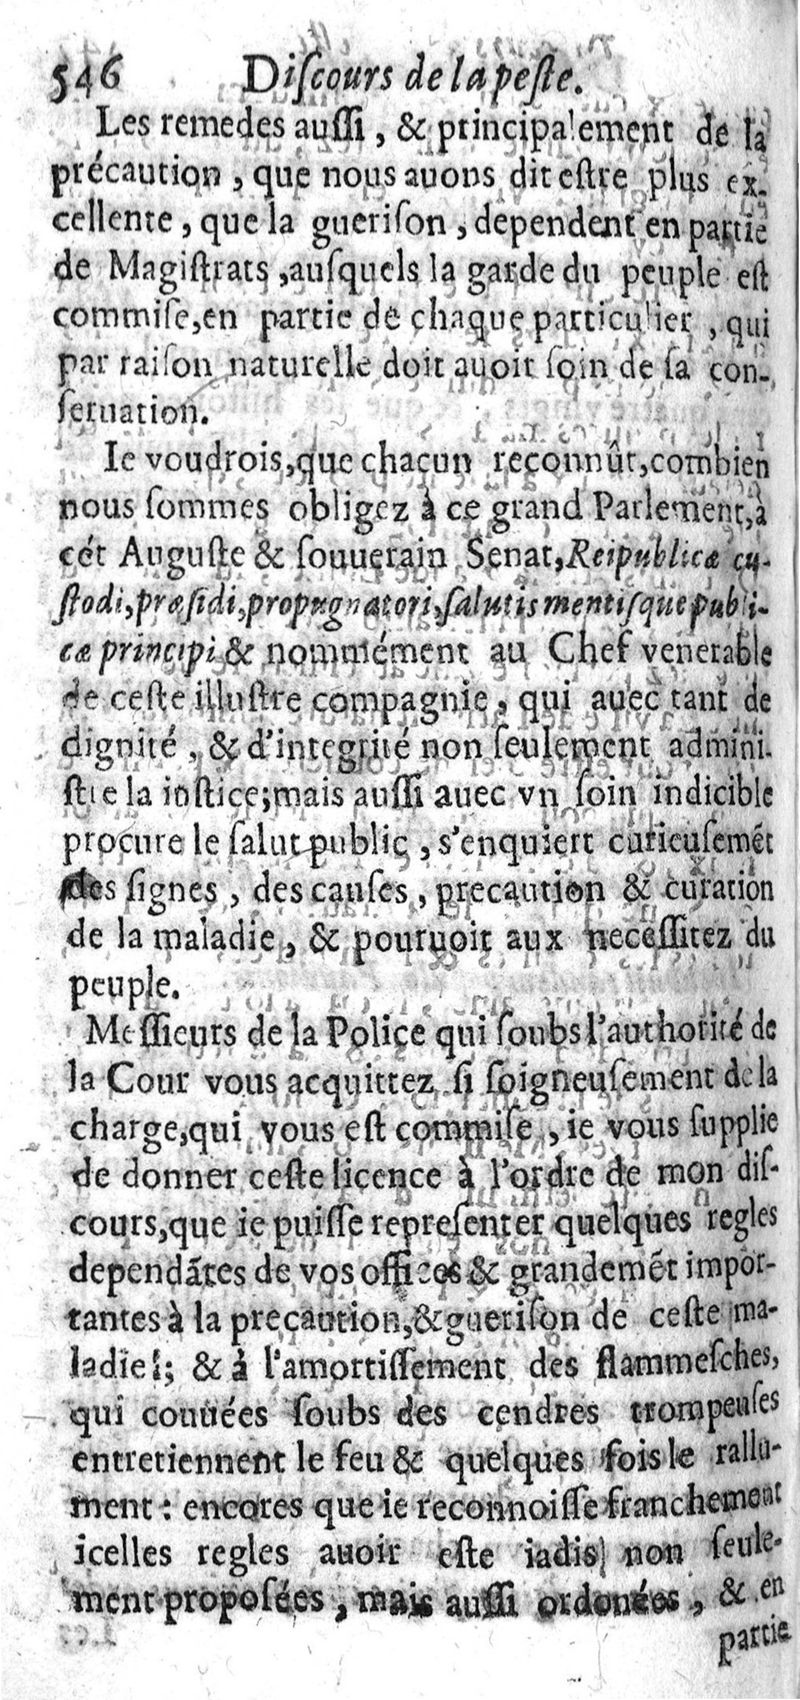 546 Diſcours de la peſte.
Les remedes auſſi, & principalement de la
précaution, que nous auons dit eſtre plus ex-
cellente, que la gueriſon, dependent en partie
de Magiſtrats, auſquels la garde du peuple eſt
commiſe, en partie de chaque particulier, qui
par raiſon naturelle doit auoir ſoin de ſa con-
ſeruation.
Ie voudrois, que chacun reconnût, combien
nous ſommes obligez à ce grand Parlement, à
cét Auguſte & ſouuerain Senat, Reipublicæ cu-
ſtodi, præſidi, propugnatori, ſalutis mentiſque publi-
cæ principi & nommément au Chef venerable
de ceſte illuſtre compagnie, qui auec tant de
dignité, & d'integrité non ſeulement admini-
ſtre la iuſtice; mais auſſi auec vn ſoin indicible
procure le ſalut public, s'enquiert curieuſemẽt
des ſignes, des cauſes, precaution & curation
de la maladie, & pouruoit aux neceſſitez du
peuple.
Meſſieurs de la Police qui ſoubs l'authorité de
la Cour vous acquittez ſi ſoigneuſement de la
charge, qui vous eſt commiſe, ie vous ſupplie
de donner ceſte licence à l'ordre de mon diſ-
cours, que ie puiſſe repreſenter quelques regles
dependãtes de vos offices & grandemẽt impor-
tantes à la precaution, & gueriſon de ceſte ma-
ladie; & à l'amortiſſement des flammeſches,
qui couuées ſoubs des cendres trompeuſes
entretiennent le feu & quelques fois le rallu-
ment: encores que ie reconnoiſſe franchement
icelles regles auoir eſte iadis non ſeule-
ment propoſées, mais auſſi ordonées, & en
partie